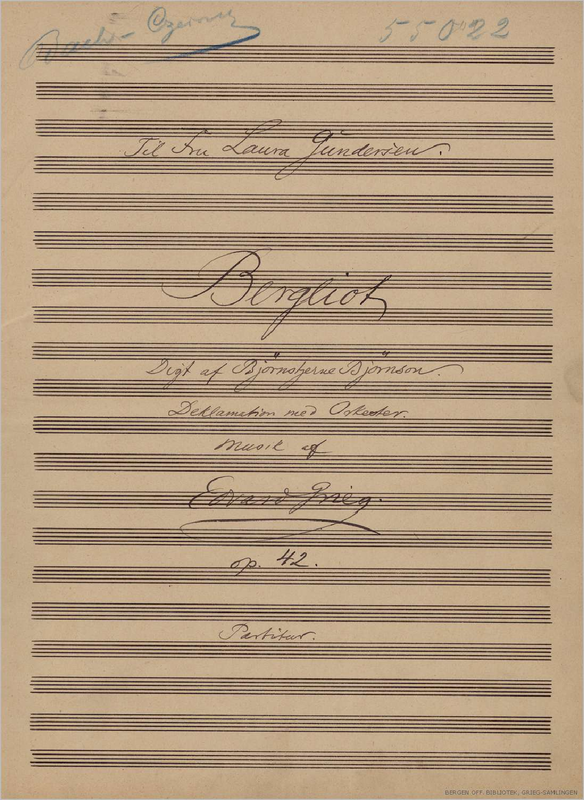 Bach-Czerny
55022
Til Fru Laura Gundersen.
Bergliot
Digt af Björnstjerne Björnson.
Deklamation med Orkester.
Musik af
Edvard Grieg.
op. 42.
Partitur.
BERGEN OFF. BIBLIOTEK, GRIEG-SAMLINGEN